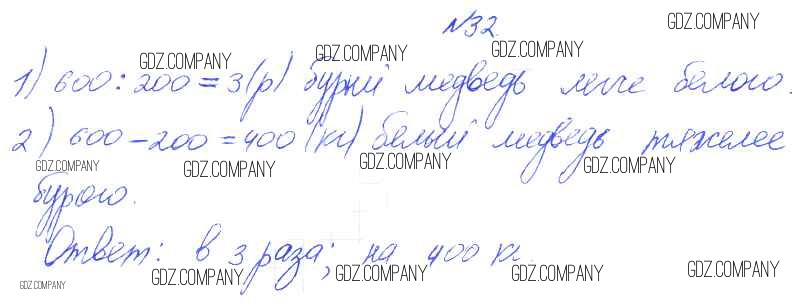 №32.
1) 600 : 200 = 3 (р) бурый медведь легче белого.
2) 600 - 200 = 400 (кг) белый медведь тяжелее
бурого.
Ответ: в 3 раза; на 400 кг.
GDZ.COMPANY
GDZ.COMPANY
GDZ.COMPANY
GDZ.COMPANY
GDZ.COMPANY
GDZ.COMPANY
GDZ.COMPANY
GDZ.COMPANY
GDZ.COMPANY
GDZ.COMPANY
GDZ.COMPANY
GDZ.COMPANY
GDZ.COMPANY